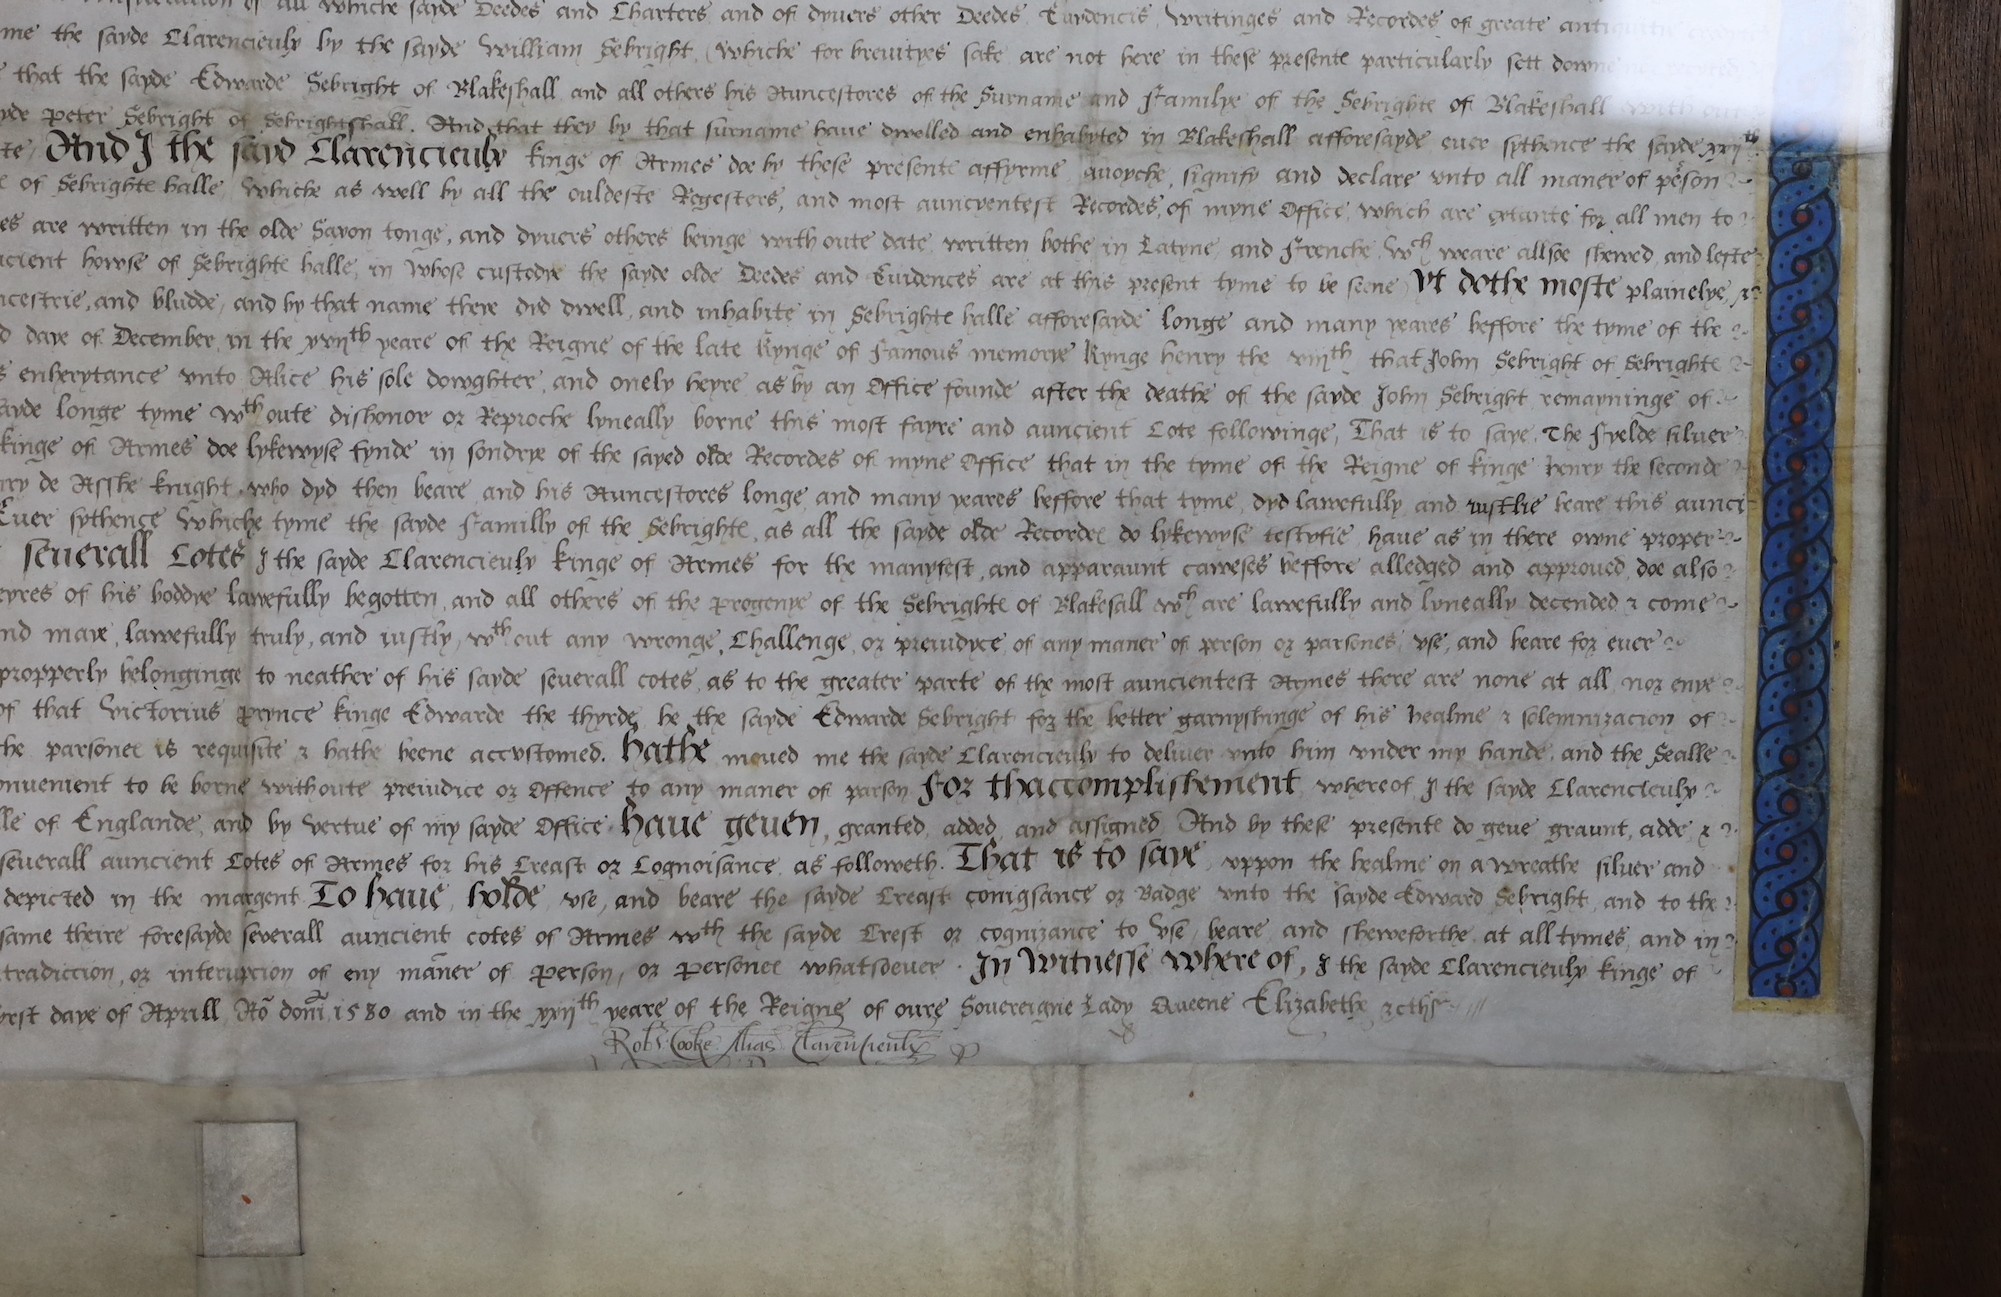 of all whiche sayde Deedes and Charters and of dyuers other Deedes Euydencis writinges and Recordes of greate
me the sayde Clarencieulx by the sayde William Sebright (whiche for brevityes sake are not here in these presente particularly sett downe
that the sayde Edwarde Sebright of Blakeshall and all others his Auncestores of the Surname and Familye of the Sebrighte of Blakeshall
yde Peter Sebright of Sebrightshall. And that they by that surname haue dwelled and enhabyted in Blakeshall afforesayde euer sythence the sayde xviith
te, And I the sayd Clarencieulx kinge of Armes doe by these presente affyrme auoyche, signify and declare vnto all maner of person
of Sebrighte halle, whiche as well by all the ouldeste Regesters, and most auncyentest Recordes, of myne Office, which are extante for all men to
es are written in the olde Saxon tonge, and dyuers others beinge with oute date written bothe in Latyne and Frenche wch weare allsoe shewed, and lefte
ncient howse of Sebrighte halle, in whose custodye the sayde olde Deedes and Euidences are at this present tyme to be seene, Yt dothe moste plainelye,
ncestrie, and bludde, and by that name there dyd dwell, and inhabite in Sebrighte halle afforesayde longe and many yeares beffore the tyme of the
d daye of December, in the xviith yeare of the Reigne of the late Kynge of Famous memorye Kynge henry the viijth that John Sebright of Sebrighte
s enherytance vnto Alice his sole dowghter, and onely heyre as by an Office founde after the deathe of the sayde John Sebright remayninge of
ayde longe tyme wthoute dishonor or Reproche lyneally borne this most fayre and auncient Cote followinge, That is to saye. The Fyelde siluer
kinge of Armes doe lykewyse fynde in sondrye of the sayed olde Recordes of myne Office that in the tyme of the Reigne of kinge henry the seconde
nry de Asshe knight, who dyd then beare and his Auncestores longe and many yeares beffore that tyme, dyd lawefully and iustlie beare this aunci
Euer sythence whiche tyme the sayde Familly of the Sebrighte, as all the sayde olde Recordes do lykewyse testyfie, haue as in there owne proper
seuerall Cotes I the sayde Clarencieulx kinge of Armes for the manyfest, and apparaunt caweses beffore alledged and approued, doe also
eyres of his boddye lawefully begotten, and all others of the progenye of the Sebrighte of Blakesall wch are lawefully and lyneally decended & come
nd maye, lawefully truly, and iustly, wthout any wronge, Challenge, or preiudyce, of any maner of person or parsones, vse, and beare for euer
propperly belonginge to neather of his sayde seuerall cotes, as to the greater parte of the most auncientest Armes there are none at all, nor enye
of that Victorius prynce kinge Edwarde the thyrde, he the sayde Edwarde Sebright for the better garnyshinge of his healme & solemnizacion of
the parsones is requisite & hathe beene accvstomed. hathe moued me the sayde Clarencieulx to deliuer vnto him vnder my hande, and the Sealle
onuenient to be borne withoute preiudice or Offence to any maner of parson For thaccomplishement whereof I the sayde Clarencieulx
lle of Englande, and by vertue of my sayde Office haue geuen, granted, added, and assigned, And by these presente do geue graunt, adde &
seuerall auncient Cotes of Armes for his Creast or Cognoisance as followeth. That is to saye vppon the healme on a wreathe siluer and
depicted in the margent To haue, holde, vse, and beare the sayde Creast connigsance or Badge vnto the sayde Edward Sebright and to the
same theire foresayde seuerall auncient cotes of Armes wth the sayde Crest or cognizance to vse, beare, and sheweforthe at all tymes, and in
tradiccion, or interupcion of eny maner of person, or persones whatsoever. In Witnesse where of, I the sayde Clarencieulx kinge of
yrst daye of Aprill, Ao domi 1580 and in the xxijth yeare of the Reigne of oure Souereigne Lady Queene Elizabethe &cths
Robt Cooke Alias Clarencieulx